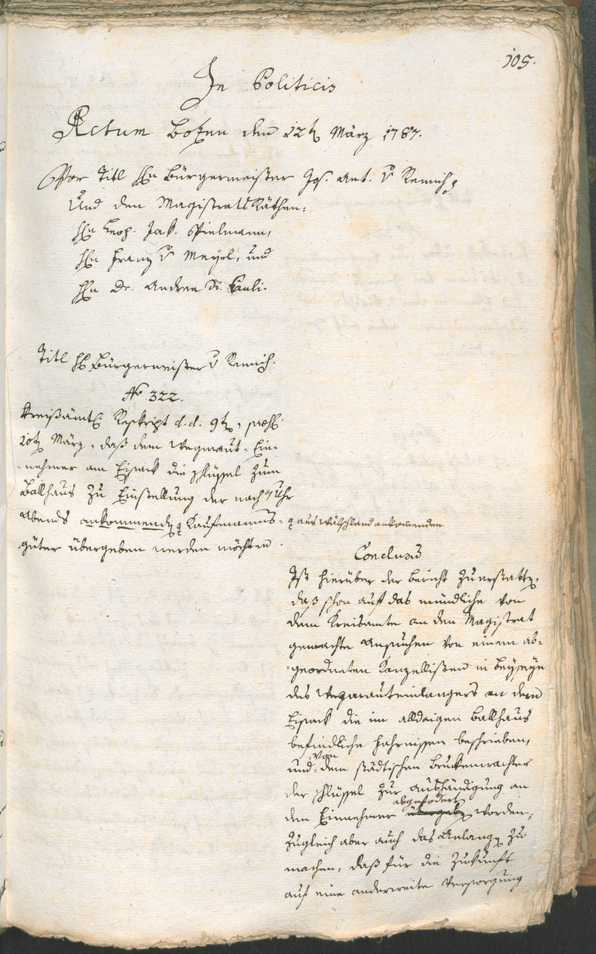 105.
In Politicis
Actum Bozen den 12t März 1787.
Vor Titl Hn Bürgermeister Jos. Ant. v Remich,
Und den Magistratsräthen,
Hn Leop. Jak. Spielmann,
Hn Franz v Meyrl, und
Hn Dr. Andree Di Pauli.
Titl H Bürgermeister v Remich.
No 322.
Kreisämtl Reskript d. d. 9t, præs.
10t März, daß dem Wegmaut-Ein-
nehmer am Eisack die Schlüssel zum
Ballhaus zu Einstellung der nach 7 Uhr
abends ankommenden Kaufmanns-
aus Wälschland ankommenden
güter übergeben werden möchten.
Conclusum
Ist hierüber der Bericht zu erstatten,
daß schon auf das mündliche von
dem Kreisamte an den Magistrat
gemachte Ansuchen von einem ab-
geordneten Kanzellisten in Beyseyn
des Wegmauteinlangers an dem
Eisack die im alldaigen Ballhaus
befindliche Fahrnissen beschrieben,
und von dem städtischen Bruckenwachter
der Schlüssel zur Aushändigung an
den Einnehmer abgefodert worden,
zugleich aber auch das Anlangen zu
machen, daß für die Zukunft
auf eine anderweite Versorgung